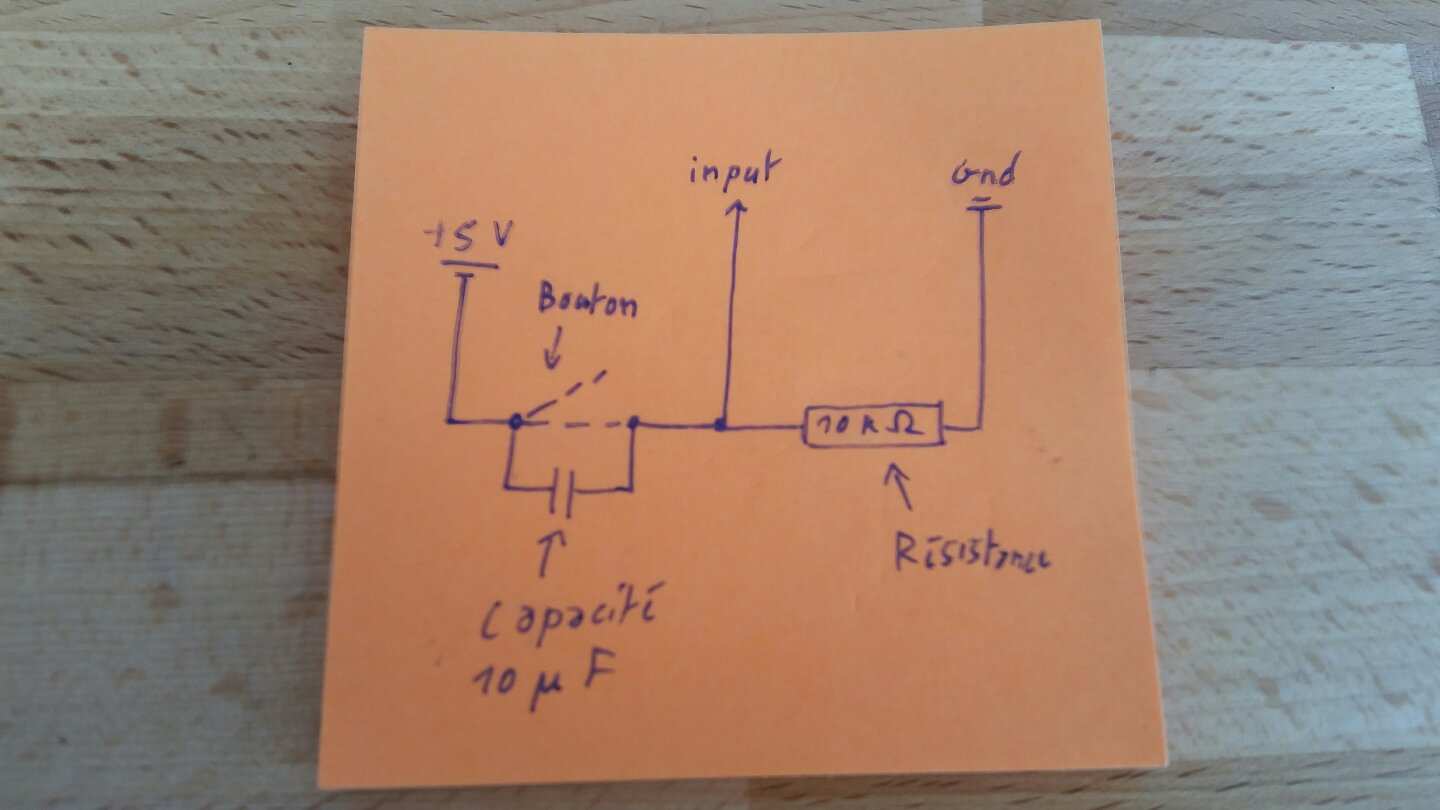 input
Gnd
+5 V
Bouton
10 k Ω
Résistance
Capacité
10 µ F